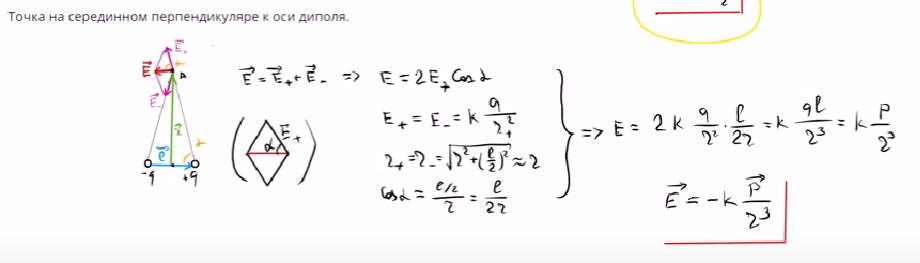 Точка на серединном перпендикуляре к оси диполя.
E⃗₊
α
E⃗
A
E⃗₋
r⃗
l⃗
α
-q +q
E⃗ = E⃗₊ + E⃗₋ => E = 2E₊ cos α
( α E₊ )
E₊ = E₋ = k q/r₊²
r₊ = r₋ = √(r² + (l/2)²) ≈ r
cos α = (l/2)/r = l/2r
} => E = 2k q/r² · l/2r = k ql/r³ = k p/r³
E⃗ = -k p⃗/r³